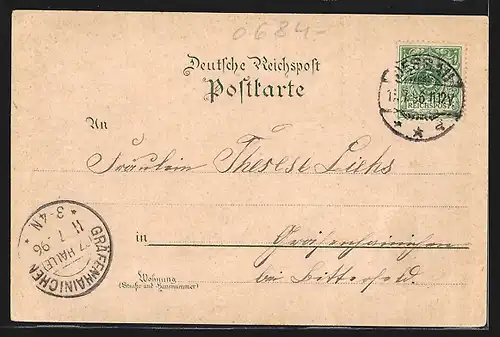 0684-
Deutsche Reichspost
Postkarte
JESSEN
REICHSPOST
An
Fräulein Therese Liehs
in Gräfenhainichen
bei Bitterfeld.
Wohnung
(Straße und Hausnummer)
GRÄFENHAINICHEN
11 7 96
3-4N